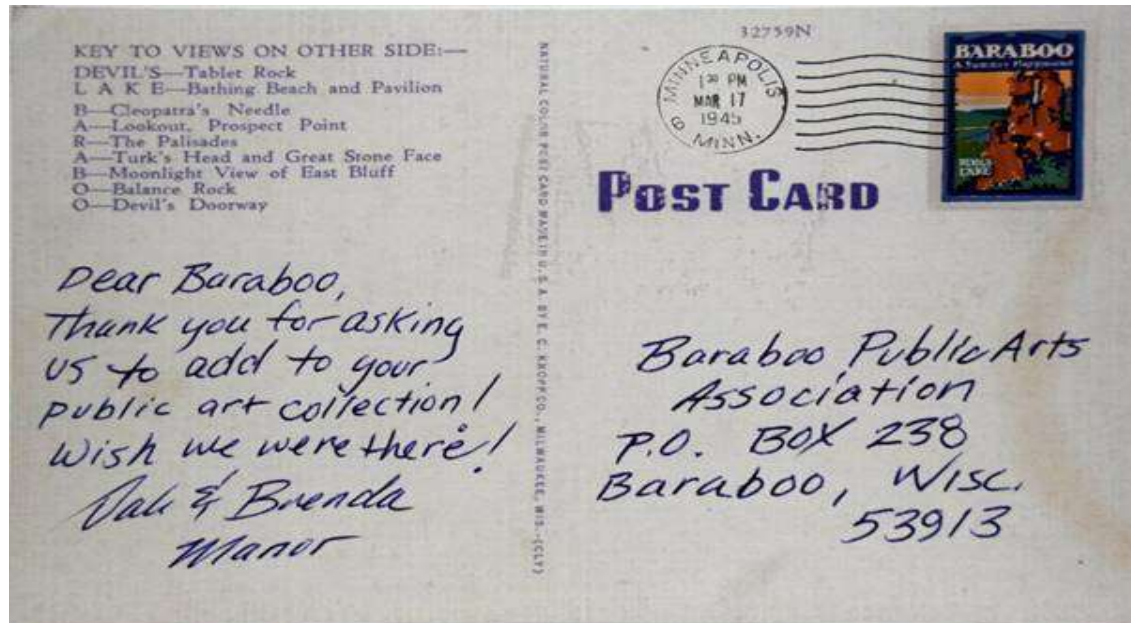 KEY TO VIEWS ON OTHER SIDE:—
DEVIL'S—Tablet Rock
L A K E—Bathing Beach and Pavilion
B—Cleopatra's Needle
A—Lookout, Prospect Point
R—The Palisades
A—Turk's Head and Great Stone Face
B—Moonlight View of East Bluff
O—Balance Rock
O—Devil's Doorway
Dear Baraboo,
Thank you for asking
us to add to your
public art collection!
Wish we were there!
Dale & Brenda
Manor
NATURAL COLOR POST CARD MADE IN U.S.A. BY E. C. KROPP CO., MILWAUKEE, WIS.-(CLY)
32759N
MINNEAPOLIS
1 30 PM
MAR 17
1945
6 MINN.
BARABOO
A Summer Playground
LAKE
POST CARD
Baraboo Public Arts
Association
P.O. BOX 238
Baraboo, Wisc.
53913